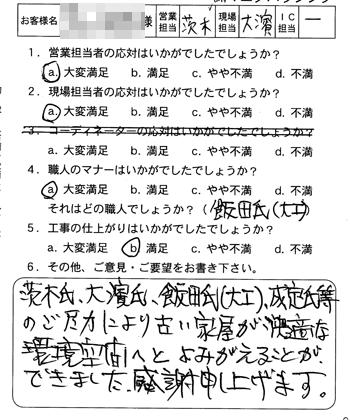 お客様名 様 営業担当 茨木 現場担当 大濱 IC担当 ー
1．営業担当者の応対はいかがでしたでしょうか？
a. 大変満足 b. 満足 c. やや不満 d. 不満
2．現場担当者の応対はいかがでしたでしょうか？
a. 大変満足 b. 満足 c. やや不満 d. 不満
3．コーディネーターの応対はいかがでしたでしょうか？
a. 大変満足 b. 満足 c. やや不満 d. 不満
4．職人のマナーはいかがでしたでしょうか？
a. 大変満足 b. 満足 c. やや不満 d. 不満
それはどの職人でしょうか？（飯田氏(大工)）
5．工事の仕上がりはいかがでしたでしょうか？
a. 大変満足 b. 満足 c. やや不満 d. 不満
6．その他、ご意見・ご要望をお書き下さい。
茨木氏、大濱氏、飯田氏(大工)、成定氏等
のご尽力により古い家屋が快適な
環境空間へとよみがえることが
できました。感謝申し上げます。